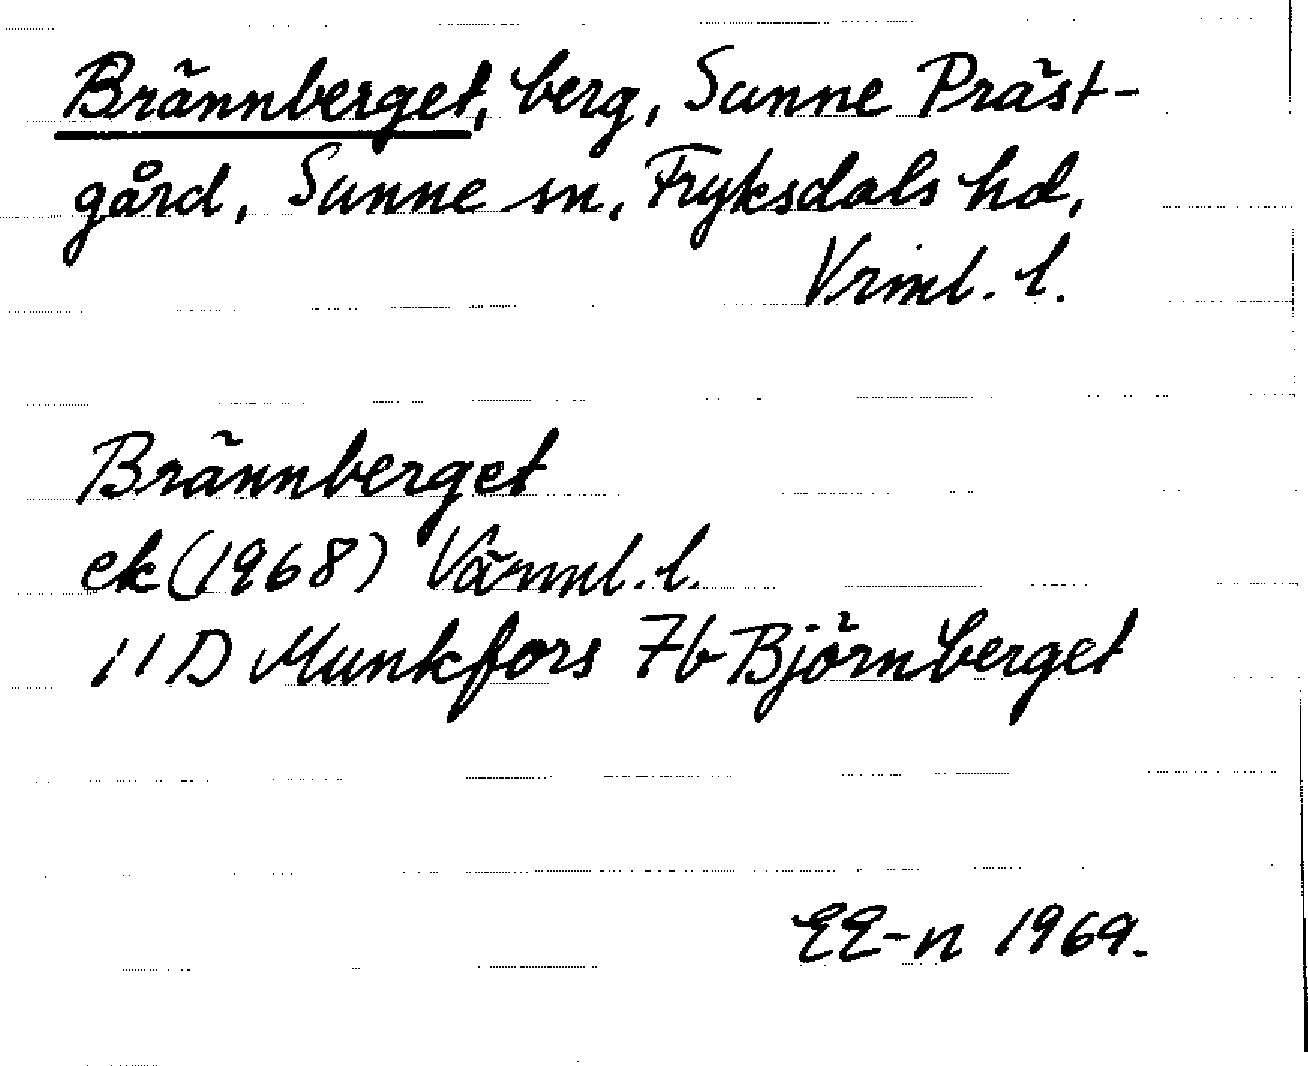 Brännberget, berg, Sunne Präst-
gård, Sunne sn, Fryksdals hd,
Vrml. l.
Brännberget
ek (1968) Värml. l.
11 D Munkfors 7b Björnberget
EE-n 1969.